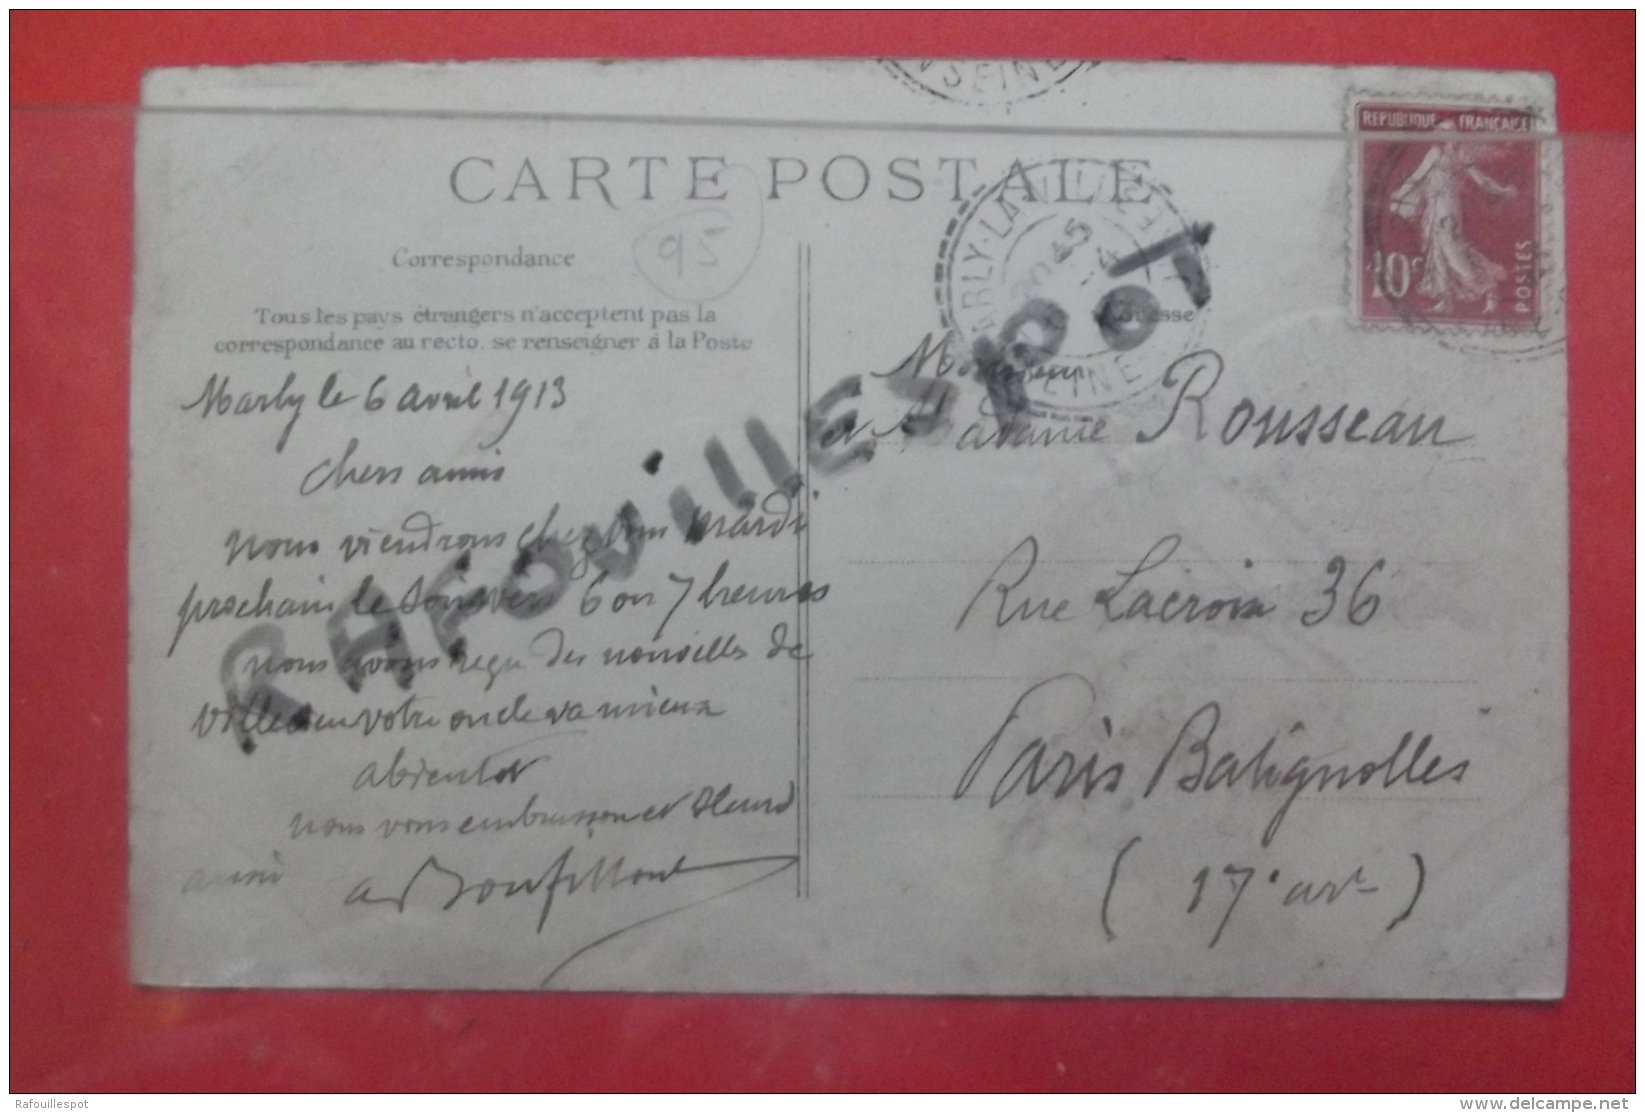 SEINE
REPUBLIQUE FRANÇAISE
10c
POSTES
CARTE POSTALE
95
Correspondance
Tous les pays étrangers n'acceptent pas la
correspondance au recto. se renseigner à la Poste
Marly le 6 avril 1913
Chers amis
nous viendrons chez vous mardi
prochain le soir vers 6 ou 7 heures
nous avons reçu des nouvelles de
votre oncle va mieux
abientot
nous vous embrassons et
ainsi
MARLY-LA-VILLE
45
4
SEINE
Adresse
Monsieur
et Madame Rousseau
Rue Lacroix 36
Paris Batignolles
(17e art)
RAFOUILLESPOT
Rafouillespot
www.delcampe.net